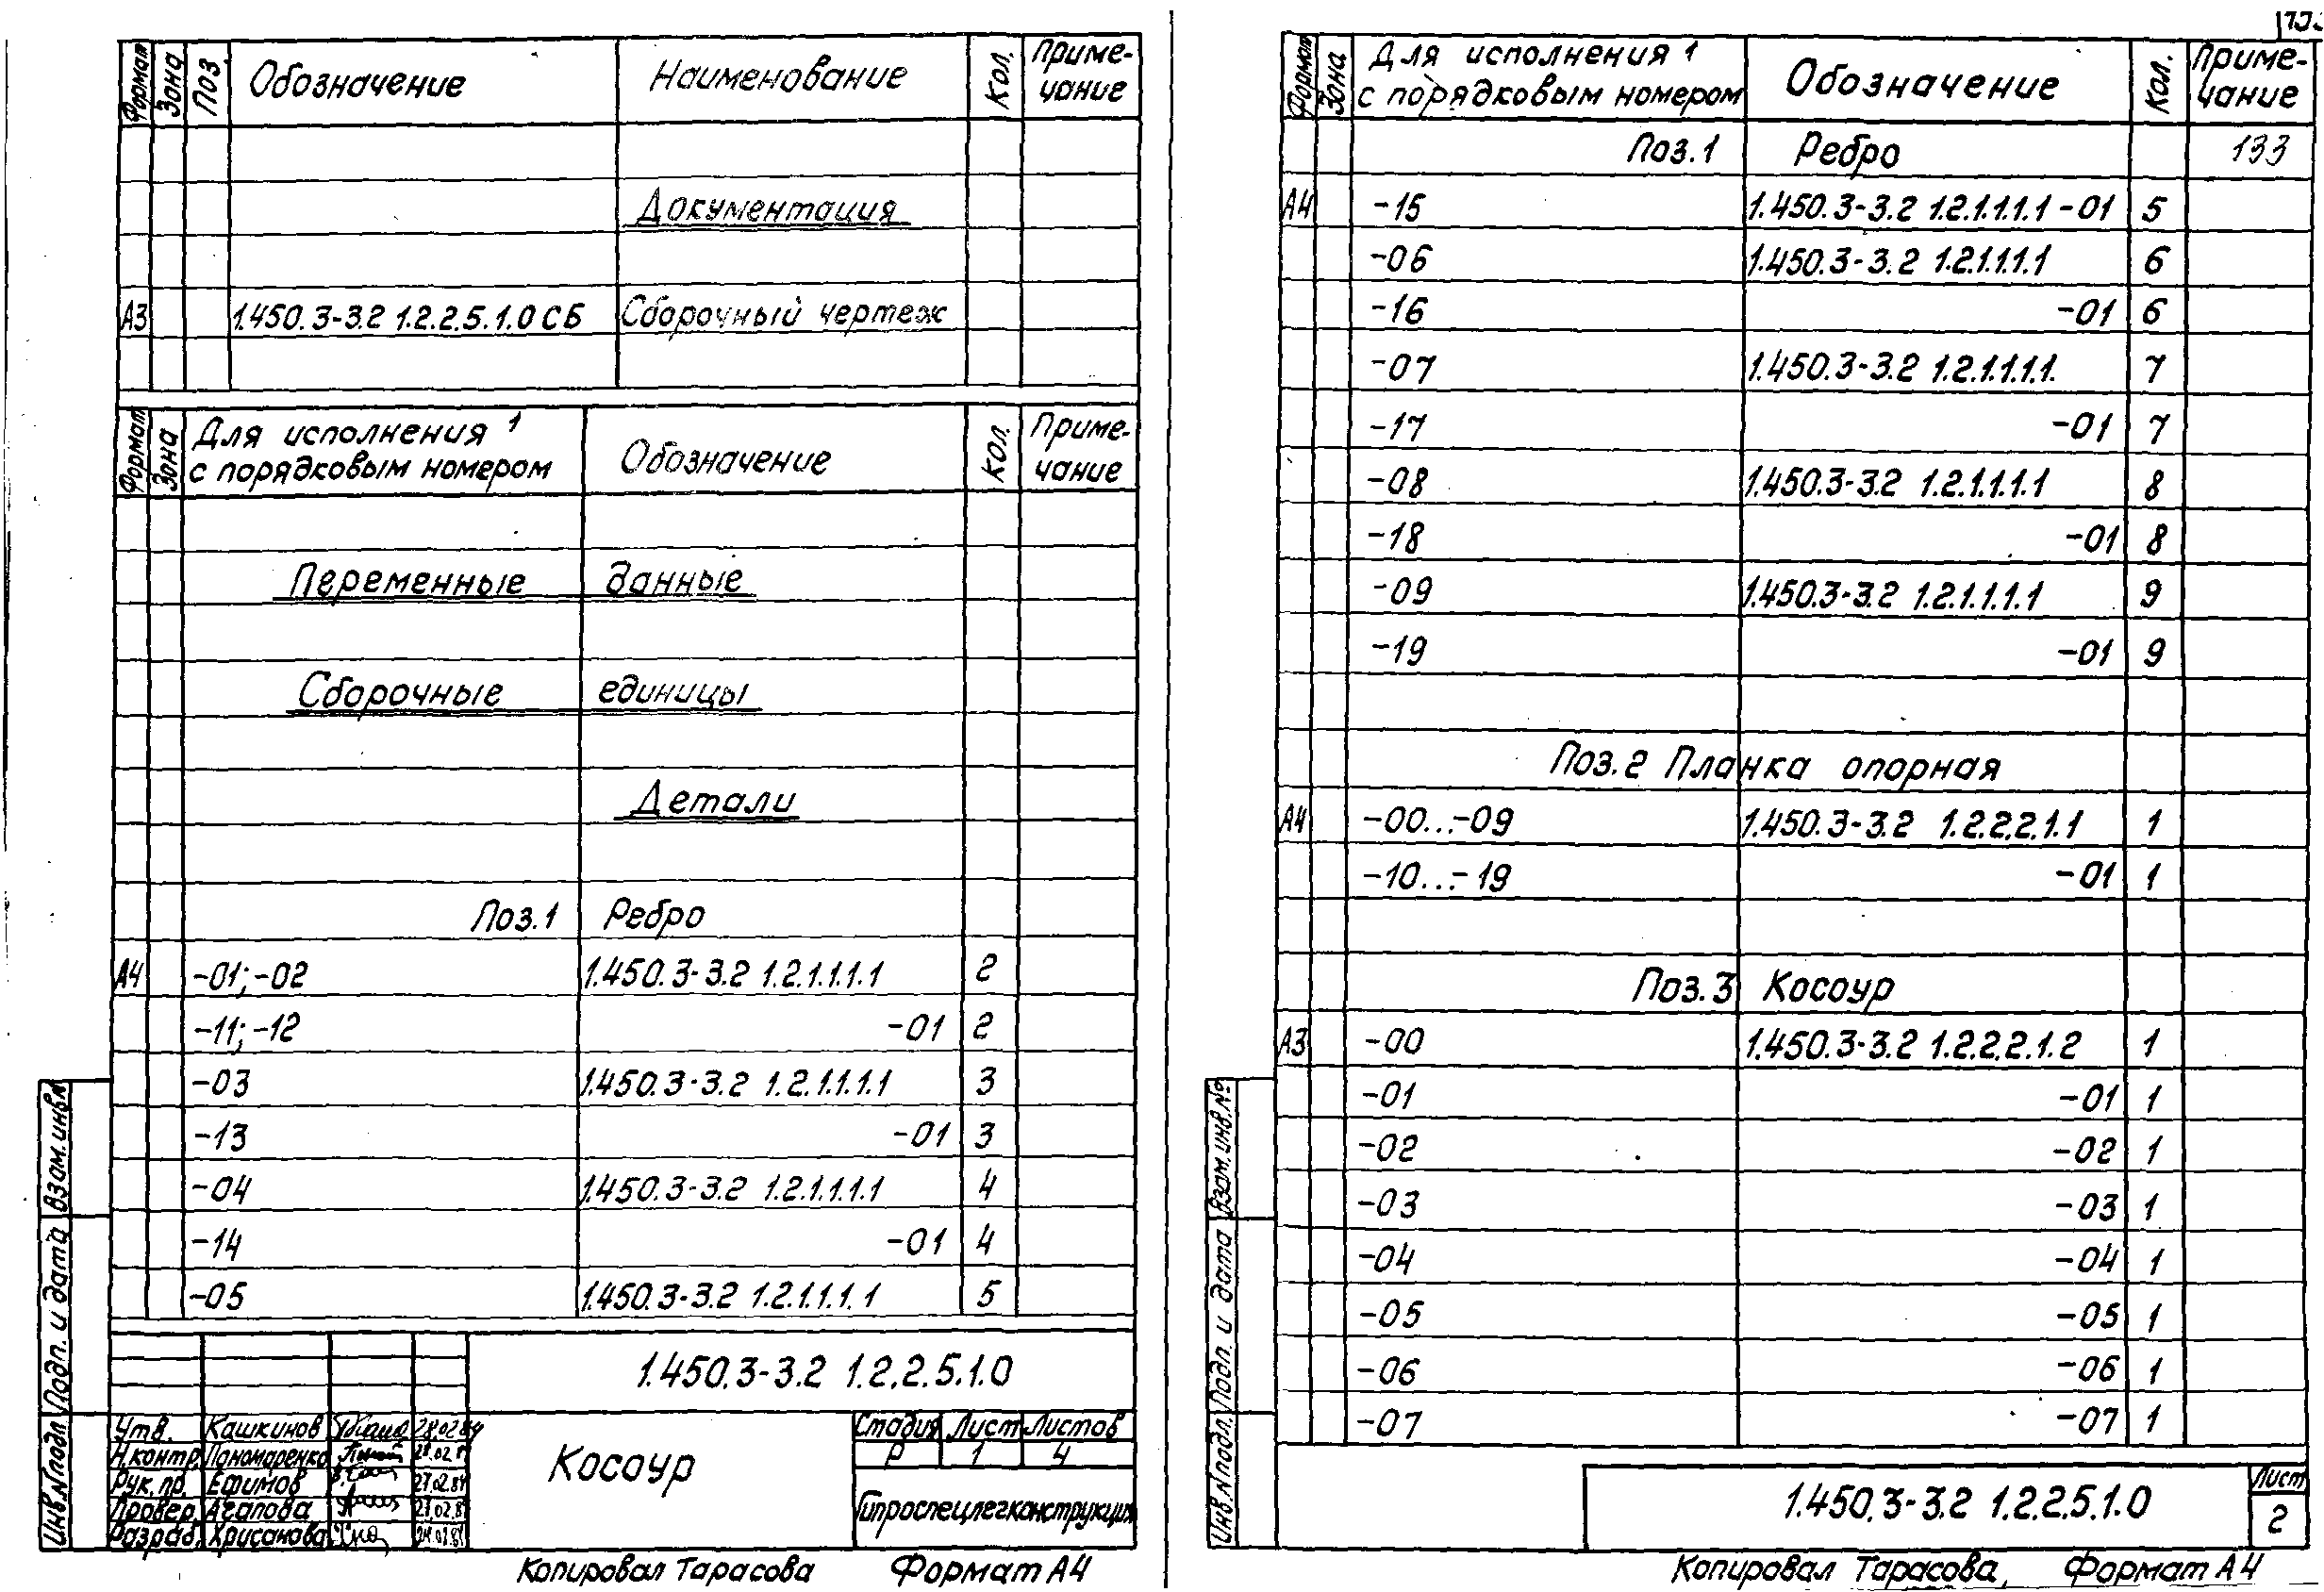 Формат Зона Поз. Обозначение Наименование Кол. Приме-
чание
Документация
А3 1.450.3-3.2 1.2.2.5.1.0 СБ Сборочный чертеж
Формат Зона Для исполнения 1
с порядковым номером Обозначение Кол. Приме-
чание
Переменные данные
Сборочные единицы
Детали
Поз.1 Ребро
А4 -01; -02 1.450.3-3.2 1.2.1.1.1.1 2
-11; -12 -01 2
-03 1.450.3-3.2 1.2.1.1.1.1 3
-13 -01 3
-04 1.450.3-3.2 1.2.1.1.1.1 4
-14 -01 4
-05 1.450.3-3.2 1.2.1.1.1.1 5
1.450.3-3.2 1.2.2.5.1.0
Утв. Кашкинов 28.02.84
Н.контр. Пономаренко
Рук. пр. Ефимов 27.02.84
Провер. Агапова
Разраб. Хрисанова
Косоур
Стадия Лист Листов
Р 1 4
Гипроспецлегконструкция
Взам. инв. №
Подп. и дата
Инв. № подл.
Копировал Тарасова Формат А4
Формат Зона Для исполнения 1
с порядковым номером Обозначение Кол. Приме-
чание
Поз.1 Ребро 133
А4 -15 1.450.3-3.2 1.2.1.1.1.1 -01 5
-06 1.450.3-3.2 1.2.1.1.1.1 6
-16 -01 6
-07 1.450.3-3.2 1.2.1.1.1.1. 7
-17 -01 7
-08 1.450.3-3.2 1.2.1.1.1.1 8
-18 -01 8
-09 1.450.3-3.2 1.2.1.1.1.1 9
-19 -01 9
Поз.2 Планка опорная
А4 -00...-09 1.450.3-3.2 1.2.2.2.1.1 1
-10...-19 -01 1
Поз.3 Косоур
А3 -00 1.450.3-3.2 1.2.2.2.1.2 1
-01 -01 1
-02 -02 1
-03 -03 1
-04 -04 1
-05 -05 1
-06 -06 1
-07 -07 1
1.450.3-3.2 1.2.2.5.1.0
Лист
2
Взам. инв. №
Подп. и дата
Инв. № подл.
Копировал Тарасова Формат А4